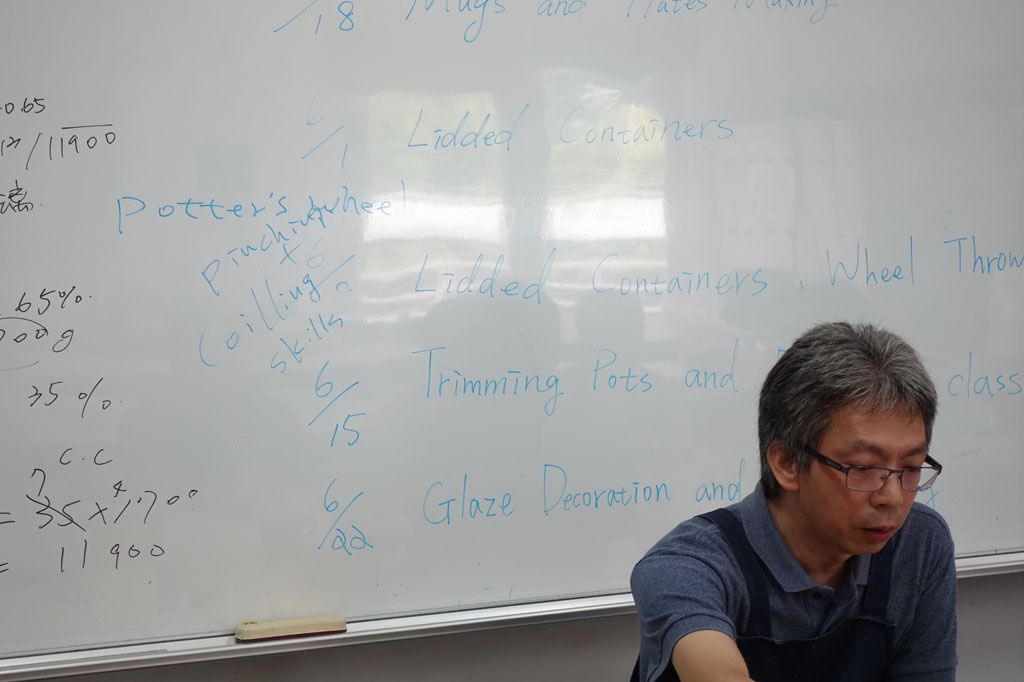 /18 Mugs and Plates Making
0.65
/11900
6/1 Lidded Containers
Potter's wheel
pinching
x
Coilling
skills
6/ Lidded Containers, Wheel Throw
65%.
000g
35%.
6/15 Trimming Pots and class
c.c
7 4
= 35x1700
= 11900
6/22 Glaze Decoration and